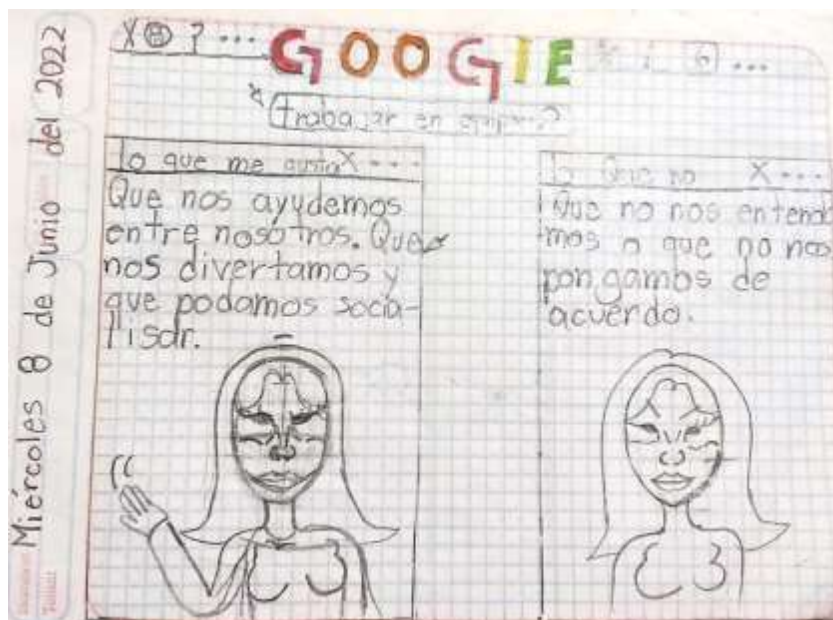 Miércoles 8 de Junio del 2022
X ? ...
GOOGlE
trabajar en
lo que me gusta X ...
Que nos ayudemos
entre nosotros. Que
nos divertamos y
que podamos socia-
lisar.
lo Que no X ...
Que no nos entenda
mos o que no nos
pongamos de
acuerdo.